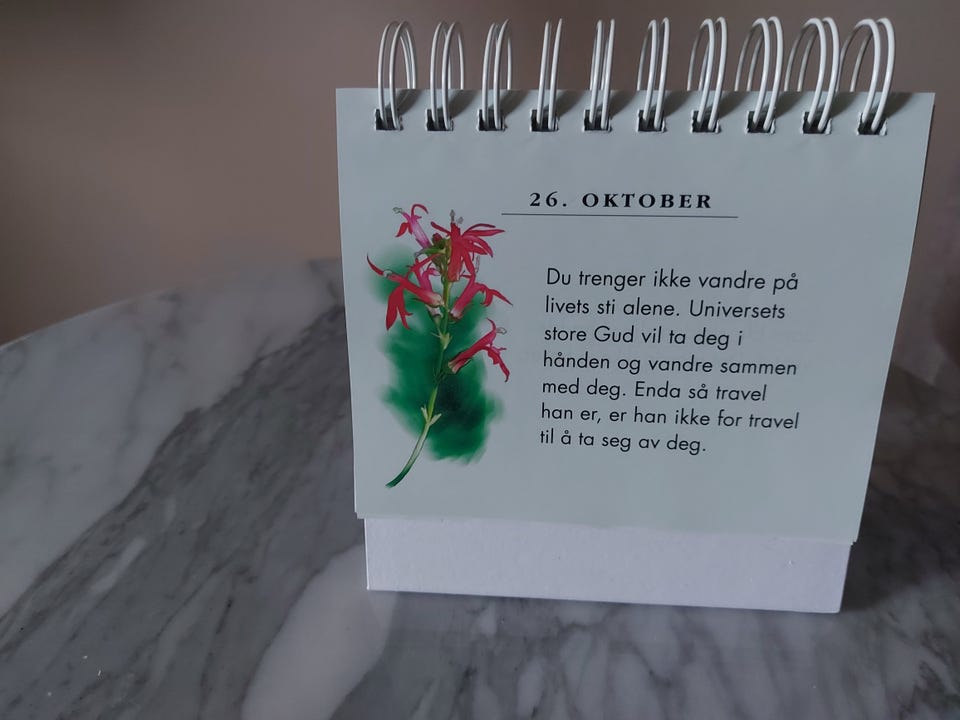 26. OKTOBER
Du trenger ikke vandre på
livets sti alene. Universets
store Gud vil ta deg i
hånden og vandre sammen
med deg. Enda så travel
han er, er han ikke for travel
til å ta seg av deg.